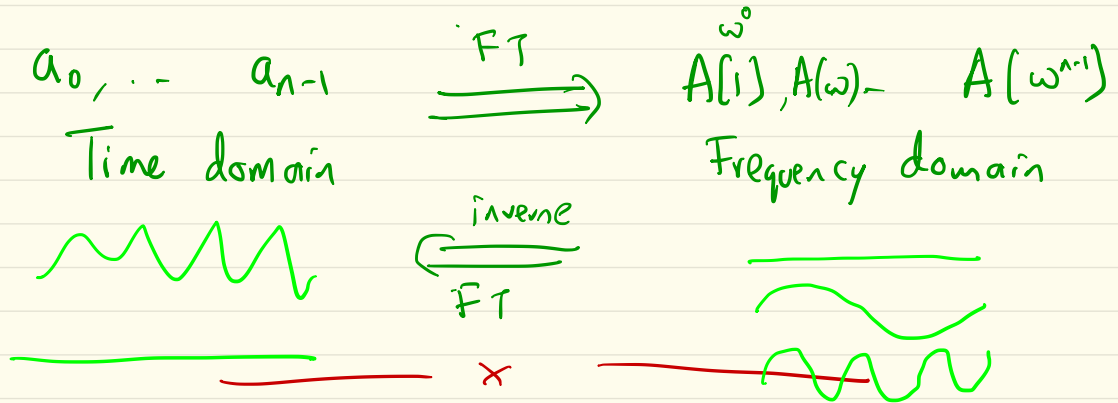 ω⁰
a₀, ... aₙ₋₁ FT A(1), A(ω) – A(ωⁿ⁻¹)
Time domain Frequency domain
inverse
FT
×